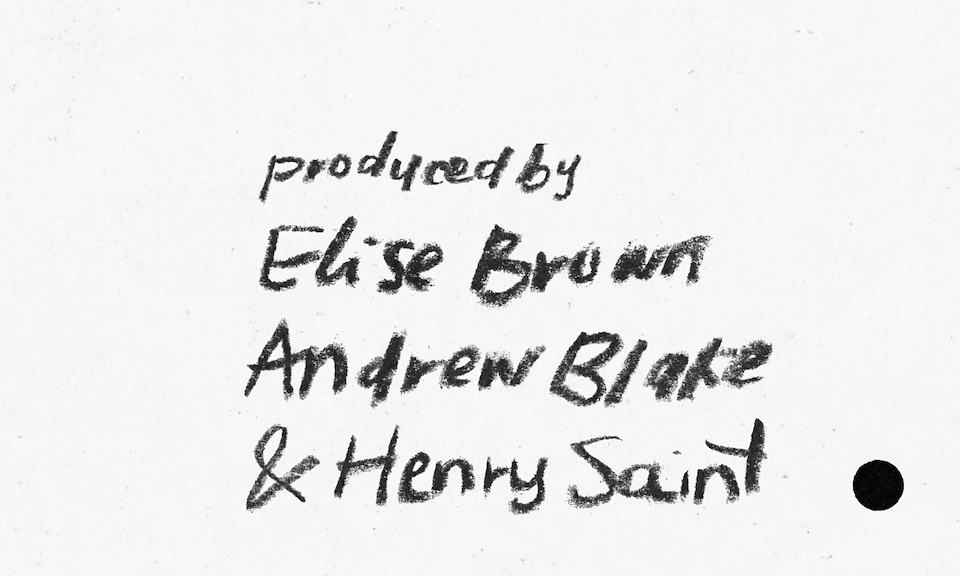 produced by
Elise Brown
Andrew Blake
& Henry Saint